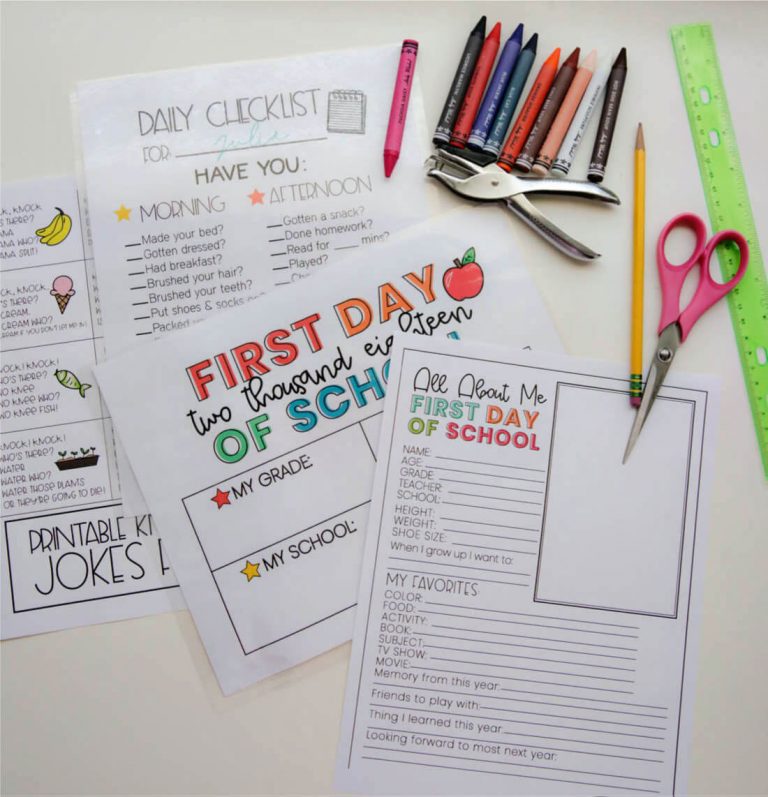 DAILY CHECKLIST
FOR: Julie
HAVE YOU:
MORNING
Made your bed?
Gotten dressed?
Had breakfast?
Brushed your hair?
Brushed your teeth?
Put shoes & socks
Packed
AFTERNOON
Gotten a snack?
Done homework?
Read for ____ mins?
Played?
KNOCK
BANANA SPLIT!
CREAM WHO?
KNOCK! KNOCK!
WHO'S THERE?
NO KNEE
NO KNEE WHO?
NO KNEE FISH!
KNOCK! KNOCK!
WHO'S THERE?
WATER
WATER WHO?
WATER THOSE PLANTS
OR THEY'RE GOING TO DIE!
PRINTABLE
JOKES
FIRST DAY
two thousand eighteen
OF SCHOOL
MY GRADE:
MY SCHOOL:
All About Me
FIRST DAY
OF SCHOOL
NAME:
AGE:
GRADE:
TEACHER:
SCHOOL:
HEIGHT:
WEIGHT:
SHOE SIZE:
When I grow up I want to:
MY FAVORITES
COLOR:
FOOD:
ACTIVITY:
BOOK:
SUBJECT:
TV SHOW:
MOVIE:
Memory from this year:
Friends to play with:
Thing I learned this year:
Looking forward to most next year: